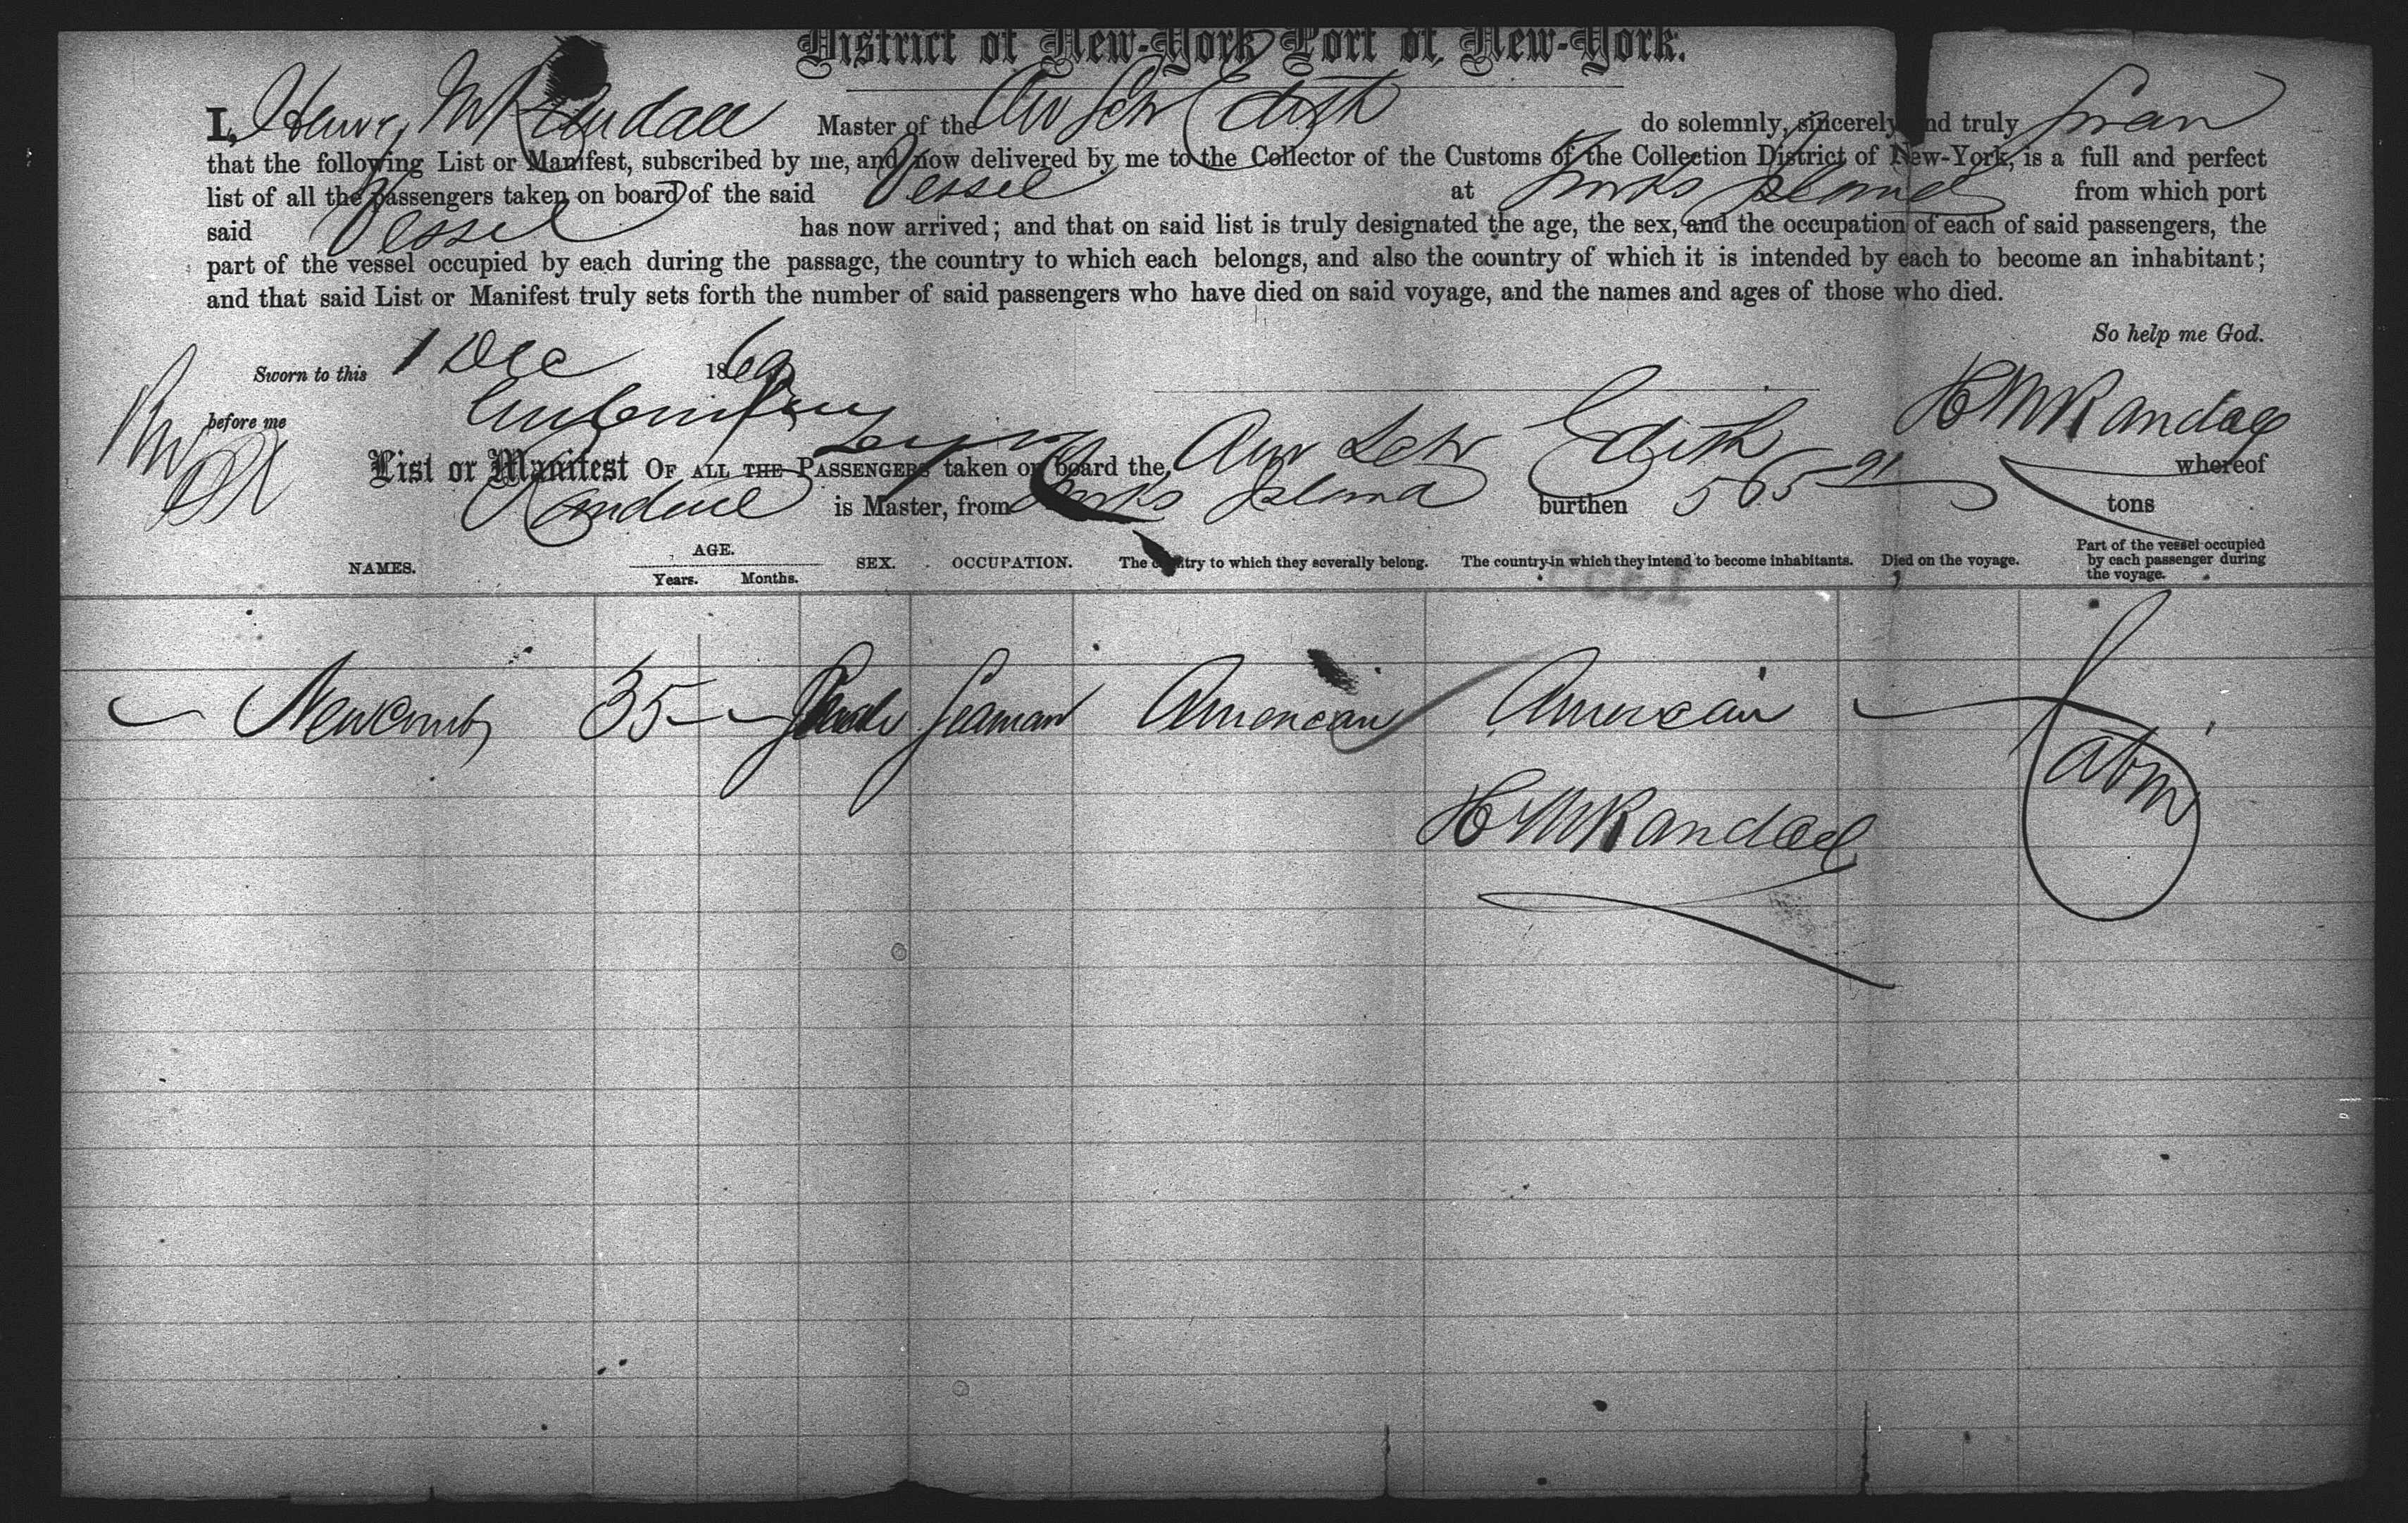 District of New-York Port of New-York.
I, Henry M Randall Master of the Am Schr Edith do solemnly, sincerely and truly swear
that the following List or Manifest, subscribed by me, and now delivered by me to the Collector of the Customs of the Collection District of New-York, is a full and perfect
list of all the passengers taken on board of the said Vessel at Turks Island from which port
said Vessel has now arrived; and that on said list is truly designated the age, the sex, and the occupation of each of said passengers, the
part of the vessel occupied by each during the passage, the country to which each belongs, and also the country of which it is intended by each to become an inhabitant;
and that said List or Manifest truly sets forth the number of said passengers who have died on said voyage, and the names and ages of those who died.
So help me God.
Sworn to this 1 Dec 1869
before me H M Randall
List or Manifest OF ALL THE PASSENGERS taken on board the Am Schr Edith whereof
Randall is Master, from Turks Island burthen 565 91 tons
NAMES. AGE. Years. Months. SEX. OCCUPATION. The country to which they severally belong. The country in which they intend to become inhabitants. Died on the voyage. Part of the vessel occupied by each passenger during the voyage.
Newcomb 35 Seaman American American Cabin
H M Randall